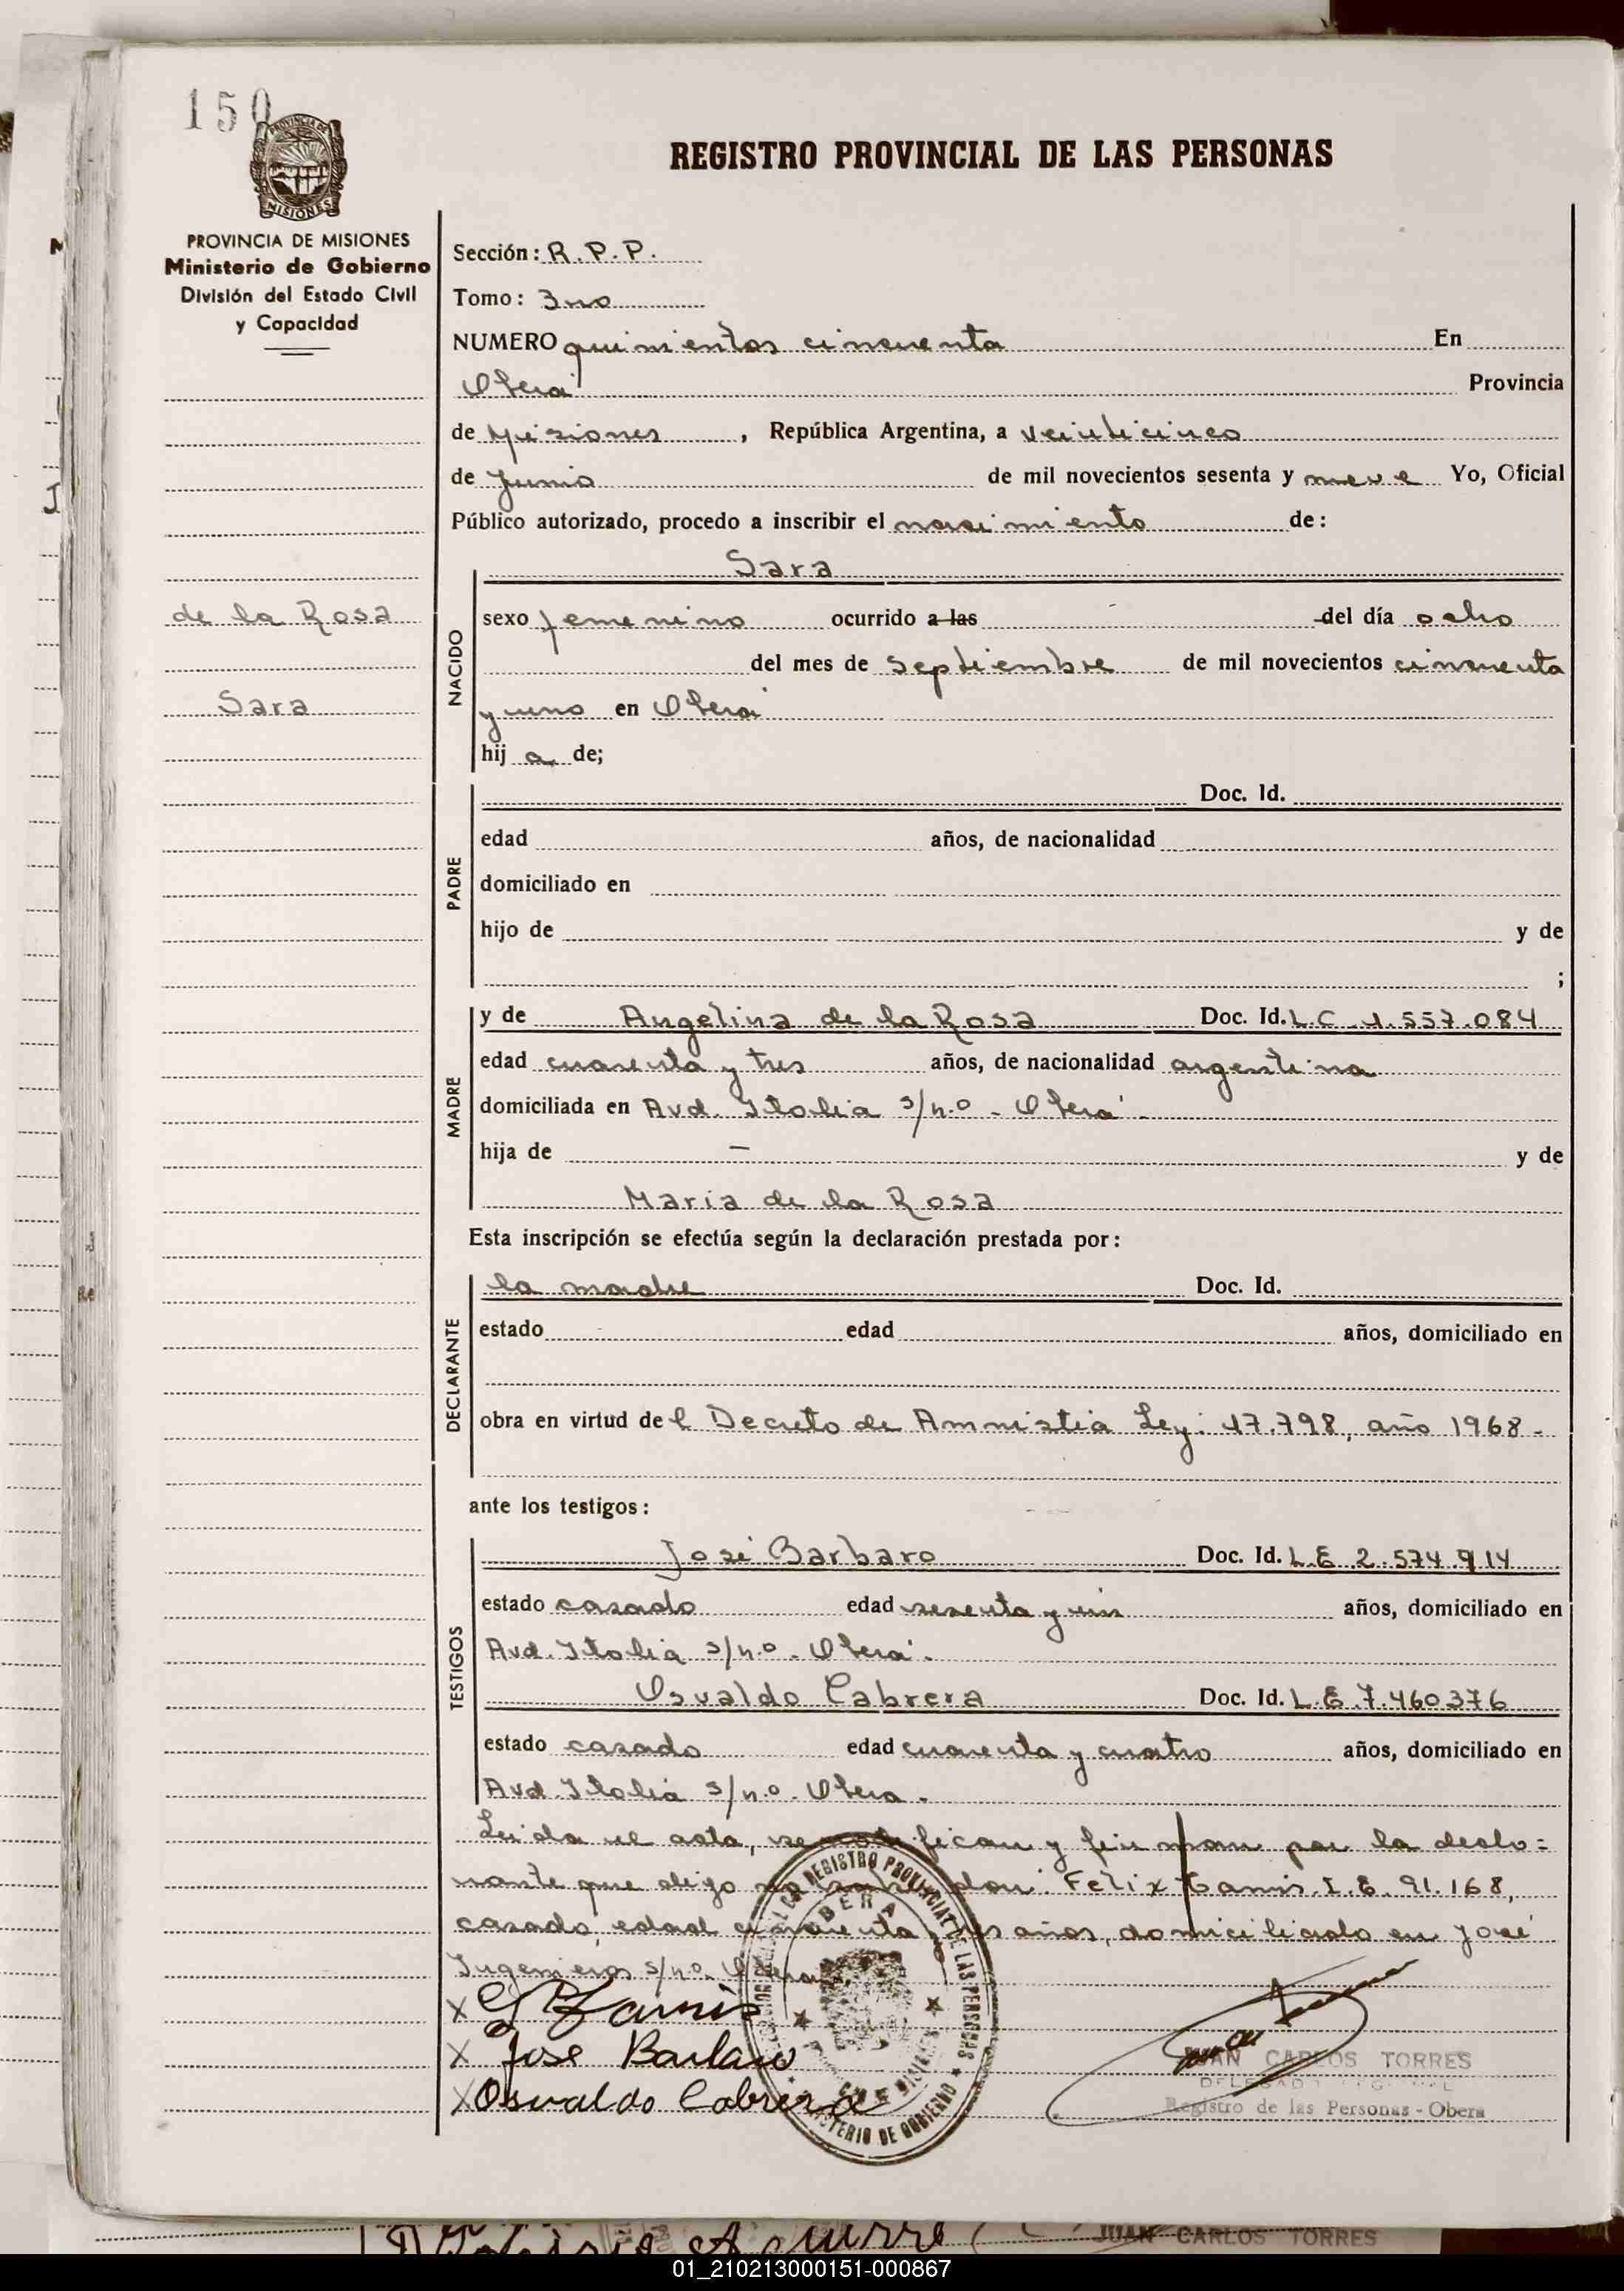 150
PROVINCIA DE
MISIONES
REGISTRO PROVINCIAL DE LAS PERSONAS
PROVINCIA DE MISIONES
Ministerio de Gobierno
División del Estado Civil
y Capacidad
Sección: R.P.P.
Tomo: 3
NUMERO quinientos cincuenta En
Oberá Provincia
de Misiones, República Argentina, a veinticinco
de Junio de mil novecientos sesenta y nueve Yo, Oficial
Público autorizado, procedo a inscribir el nacimiento de:
Sara
de la Rosa
Sara
NACIDO
sexo femenino ocurrido a las del día ocho
del mes de Septiembre de mil novecientos cincuenta
y uno en Oberá
hij a de;
PADRE
Doc. Id.
edad años, de nacionalidad
domiciliado en
hijo de y de
;
MADRE
y de Angelina de la Rosa Doc. Id. L.C. 1.557.084
edad cuarenta y tres años, de nacionalidad argentina
domiciliada en Avd. Italia s/n.o - Oberá.
hija de — y de
Maria de la Rosa
Esta inscripción se efectúa según la declaración prestada por:
DECLARANTE
la madre Doc. Id.
estado edad años, domiciliado en
obra en virtud de l Decreto de Amnistia Ley: 17.798, año 1968.-
ante los testigos:
TESTIGOS
José Barbaro Doc. Id. L.E 2.574.914
estado casado edad sesenta y años, domiciliado en
Avd. Italia s/n.o. Oberá.
Osvaldo Cabrera Doc. Id. L.E. 7.460376
estado casado edad cuarenta y cuatro años, domiciliado en
Avd. Italia s/n.o. Obera.
Leida el acta, se fican y firman por la decla=
rante que dijo Felix I.E. 91.168,
casado, edad cincuenta años, domiciliado en José
Ingenieros s/n.o. Oberá
X
X José Barbaro
X Osvaldo Cabrera
REGISTRO PROVINCIAL DE LAS PERSONAS
OBERA
MINISTERIO DE GOBIERNO
JUAN CARLOS TORRES
DELEGADO
Registro de las Personas - Obera
JUAN CARLOS TORRES
01_210213000151-000867